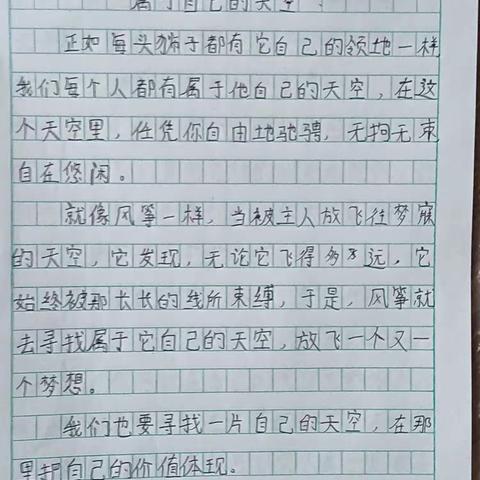 属于自己的天空
正如每头狮子都有它自己的领地一样
我们每个人都有属于他自己的天空，在这
个天空里，任凭你自由地驰骋，无拘无束
自在悠闲。
就像风筝一样，当被主人放飞往梦寐
的天空，它发现，无论它飞得多么远，它
始终被那长长的线所束缚，于是，风筝就
去寻找属于它自己的天空，放飞一个又一
个梦想。
我们也要寻找一片自己的天空，在那
里把自己的价值体现。